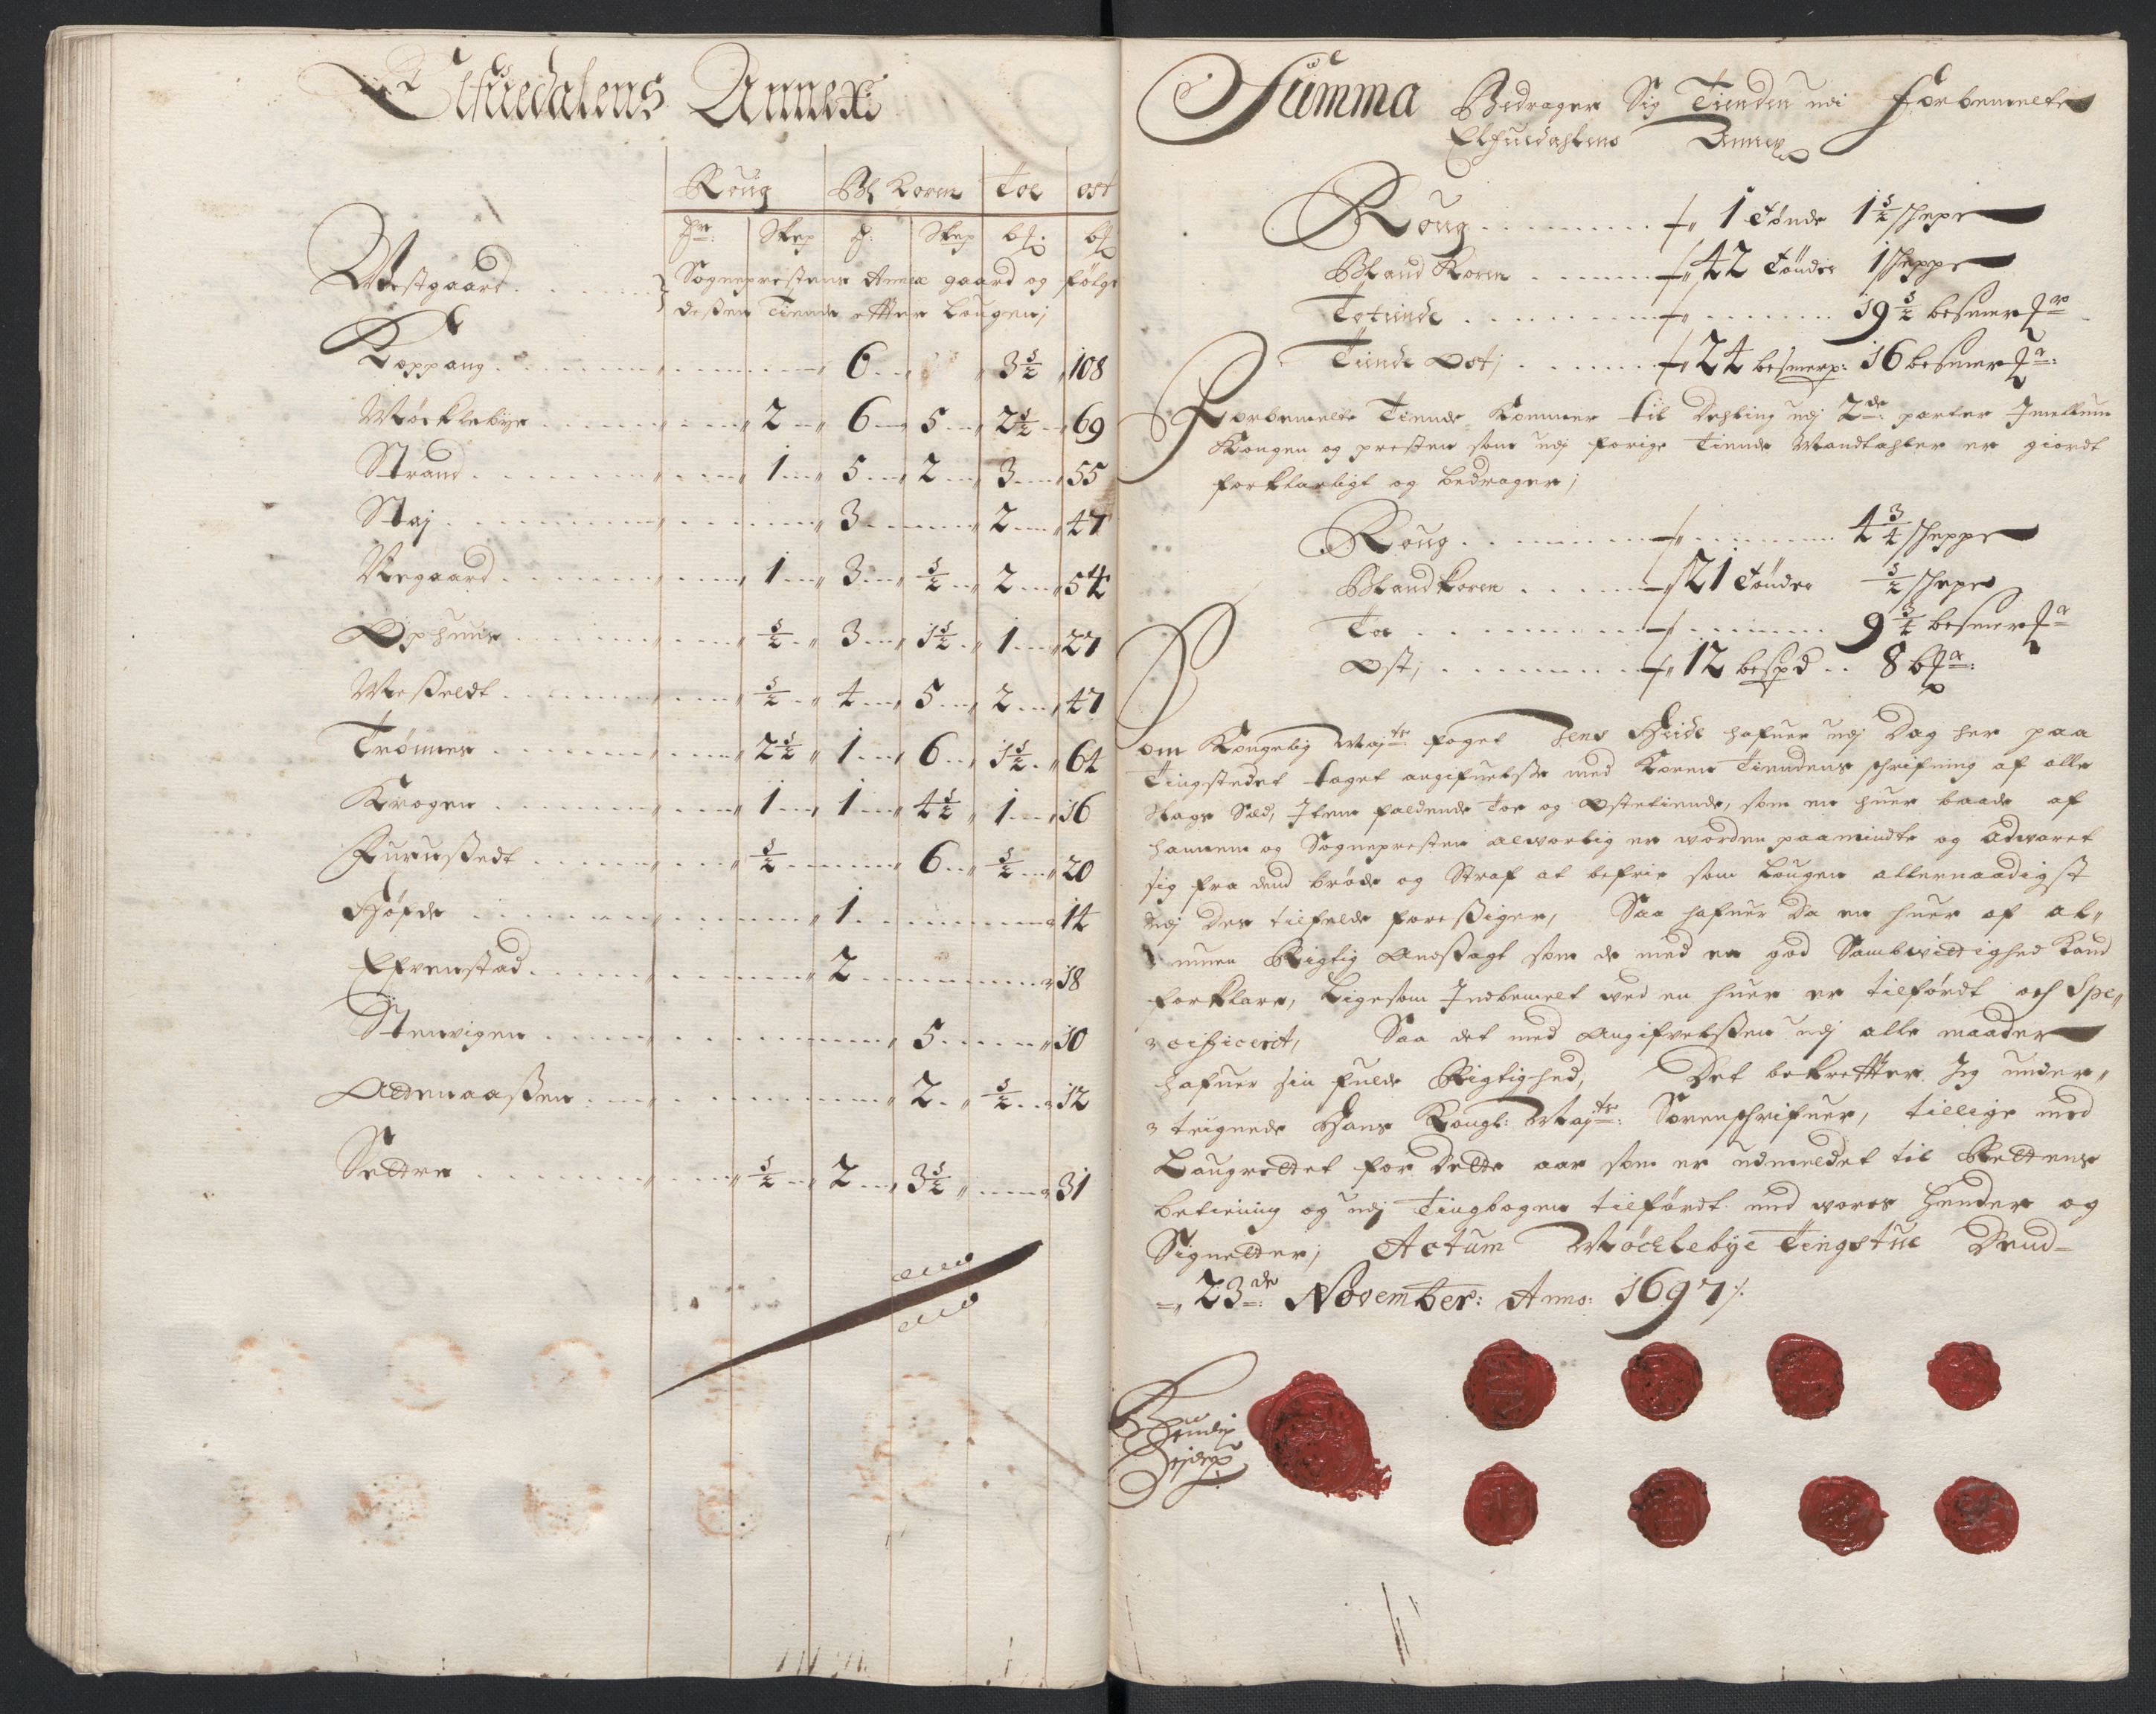 Elfuedalens Annex
Roug Bl Koren Toe ost
Skep Skep
Westgaard . . . Sogneprestens Annex gaard og følge
dessen Tiende effter Lougen;
Koppang . . . 6 . . 3½ 108
Möcklebye . . . 2 6 5 2½ 69
Strand . . . 1 5 2 3 55
Staj . . . 3 . . 2 47
Negaard . . . 1 3 ½ 2 54
Ophuus . . . ½ 3 1½ 1 27
Messeldt . . . ½ 4 5 2 47
Trønnes . . . 2½ 1 6 1½ 64
Krogen . . . 1 1 4½ 1 16
Furussedt . . . ½ . . 6 ½ 20
Høfde . . . 1 . . 14
Efvenstad . . . 2 . . 18
Stenvigen . . . 5 . . 10
Aldenaassen . . . 2 ½ 12
Settre . . . ½ 2 3½ . . 31
Summa Bedrager Sig Tienden udi forbemelte
Elfuedahlens Annex
Roug . . . 1 Tønde 1½ schepe
Bland Koren . . . 42 Tønder 1 scheppe
Toetiende . . . 19½ besmer
Tiende Ost; . . . 24 besmerp: 16 besmer
Forbemelte Tiende Kommer til Dehling udj 2de parter Imellum
Kongen og presten som udj forige Tiende Mandtahler er giordt
forklarligt og bedrager;
Roug . . . 4¾ scheppe
Bland Koren . . . 21 Tønder ½ schepe
Toe . . . 9¾ besmer
Ost; . . . 12 bespd . . 8
om Kongelig Majts foget Jens hafuer udj Dag her paa
Tingstedet taget angifuelsse med Koren Tiendens schrifning af alle
Slags Sæd, Item faldende Toe og Ostetiende, som en huer baade af
hannem og Sognepresten alvorlig er worden paamindte og advaret
sig fra dend brøde og Straf at befrie som Lougen allernaadigst
udj Des tilfelde foressiger, Saa hafuer Da en huer af al„
muen Rigtig Andsagt som de med en god Sambwittighed Kand
forklare, Ligesom Indbemelt ved en huer er tilførdt och Spe„
cificerit, Saa det med Angifvelssen udj alle maader
hafuer sin fulde Rigtighed, Det bekreffter Jeg under„
teignede Hans Kongl: Majts: Sorenschrifuer, tillige med
Laugrettet for Dette aar som er udmeldet til Rettens
betiening og udj Tingbogen tilførdt med vores Hender og
Signetter; Actum Möcklebye Tingstue Dend
23de: November: Anno: 1697